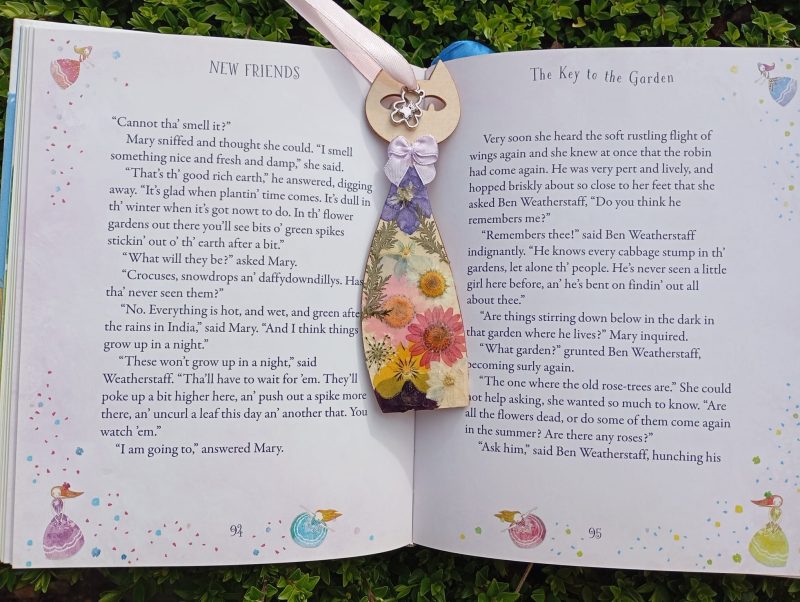 NEW FRIENDS
“Cannot tha’ smell it?”
Mary sniffed and thought she could. “I smell
something nice and fresh and damp,” she said.
“That’s th’ good rich earth,” he answered, digging
away. “It’s glad when plantin’ time comes. It’s dull in
th’ winter when it’s got nowt to do. In th’ flower
gardens out there you’ll see bits o’ green spikes
stickin’ out o’ th’ earth after a bit.”
“What will they be?” asked Mary.
“Crocuses, snowdrops an’ daffydowndillys. Has
tha’ never seen them?”
“No. Everything is hot, and wet, and green after
the rains in India,” said Mary. “And I think things
grow up in a night.”
“These won’t grow up in a night,” said
Weatherstaff. “Tha’ll have to wait for ’em. They’ll
poke up a bit higher here, an’ push out a spike more
there, an’ uncurl a leaf this day an’ another that. You
watch ’em.”
“I am going to,” answered Mary.
94
The Key to the Garden
Very soon she heard the soft rustling flight of
wings again and she knew at once that the robin
had come again. He was very pert and lively, and
hopped briskly about so close to her feet that she
asked Ben Weatherstaff, “Do you think he
remembers me?”
“Remembers thee!” said Ben Weatherstaff
indignantly. “He knows every cabbage stump in th’
gardens, let alone th’ people. He’s never seen a little
girl here before, an’ he’s bent on findin’ out all
about thee.”
“Are things stirring down below in the dark in
that garden where he lives?” Mary inquired.
“What garden?” grunted Ben Weatherstaff,
becoming surly again.
“The one where the old rose-trees are.” She could
not help asking, she wanted so much to know. “Are
all the flowers dead, or do some of them come again
in the summer? Are there any roses?”
“Ask him,” said Ben Weatherstaff, hunching his
95